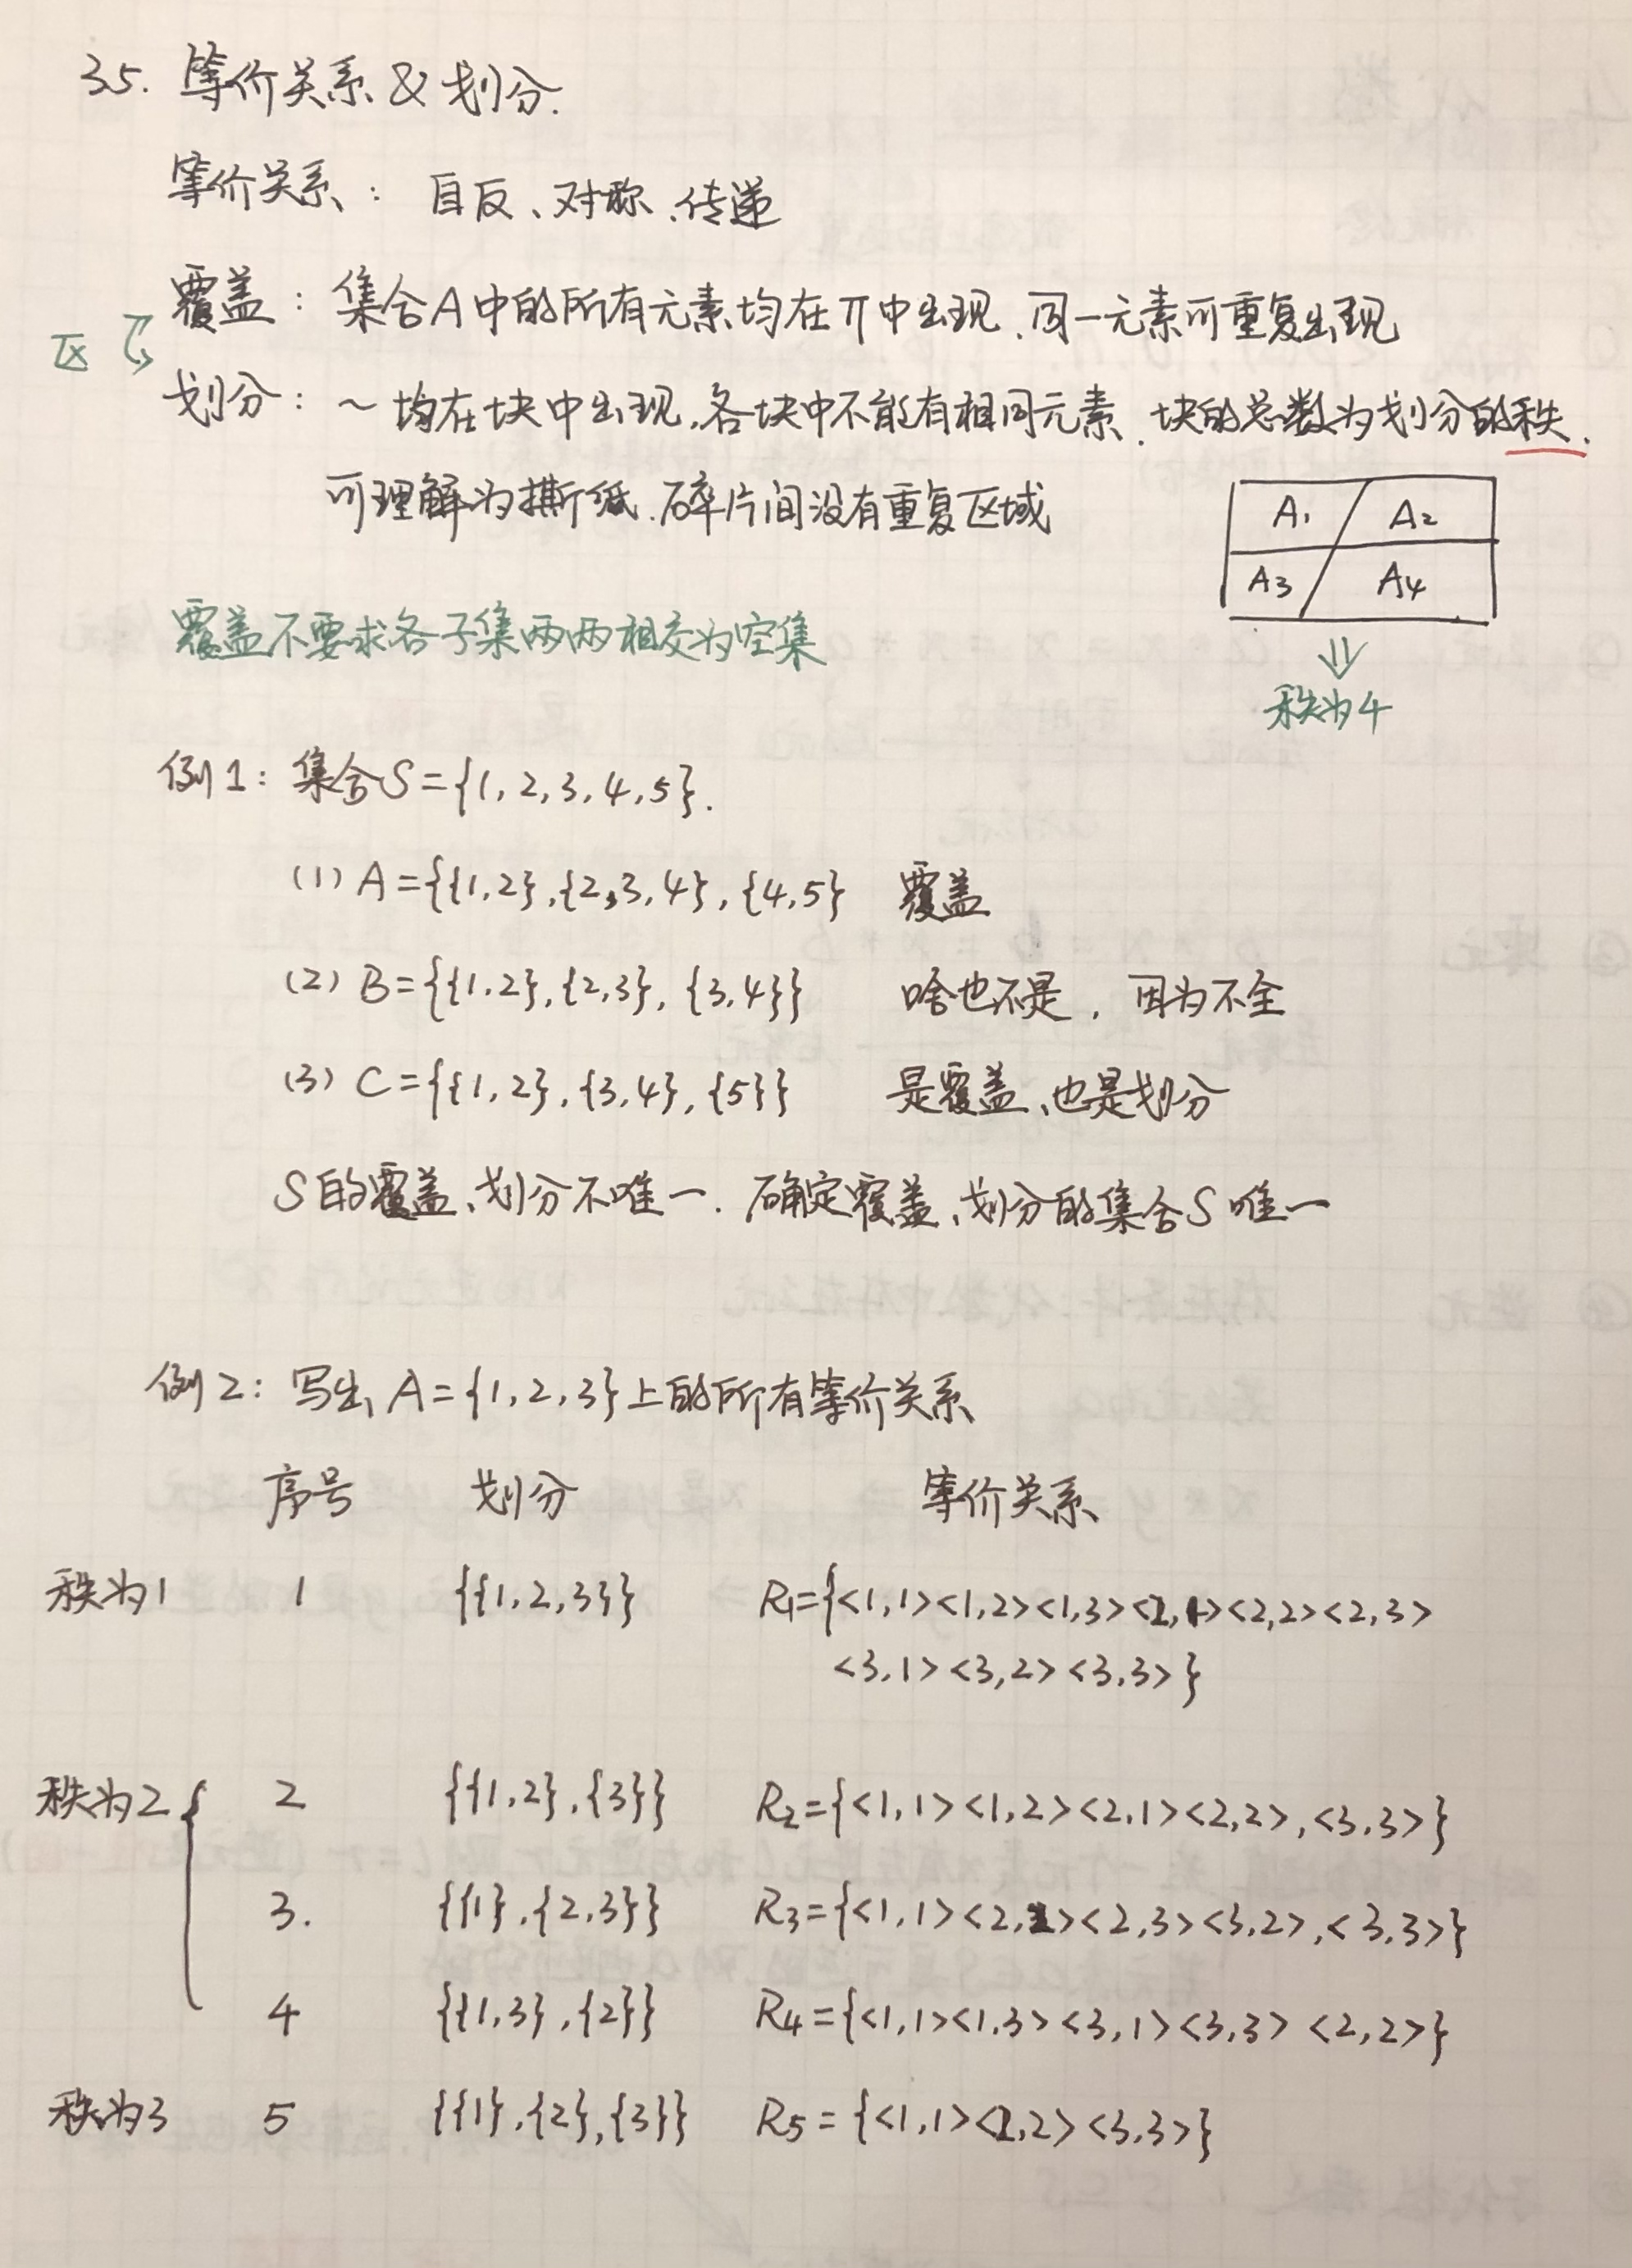 35. 等价关系 & 划分.
等价关系: 自反、对称、传递
覆盖: 集合A中的所有元素均在π中出现、同一元素可重复出现
区
划分: ~ 均在块中出现,各块中不能有相同元素、块的总数为划分的秩.
可理解为撕纸、碎片间没有重复区域
A₁ A₂
A₃ A₄
⇓
秩为4
覆盖不要求各子集两两相交为空集
例1: 集合S={1, 2, 3, 4, 5}.
(1) A={{1,2},{2,3,4},{4,5} 覆盖
(2) B={{1,2},{2,3},{3,4}} 啥也不是, 因为不全
(3) C={{1,2},{3,4},{5}} 是覆盖、也是划分
S的覆盖、划分不唯一. 确定覆盖、划分的集合S唯一
例2: 写出A={1,2,3}上的所有等价关系
序号 划分 等价关系
秩为1 1 {{1,2,3}} R₁={<1,1><1,2><1,3><2,1><2,2><2,3>
<3,1><3,2><3,3>}
秩为2 { 2 {{1,2},{3}} R₂={<1,1><1,2><2,1><2,2>,<3,3>}
3. {{1},{2,3}} R₃={<1,1><2,2><2,3><3,2>,<3,3>}
4 {{1,3},{2}} R₄={<1,1><1,3><3,1><3,3> <2,2>}
秩为3 5 {{1},{2},{3}} R₅={<1,1><2,2><3,3>}